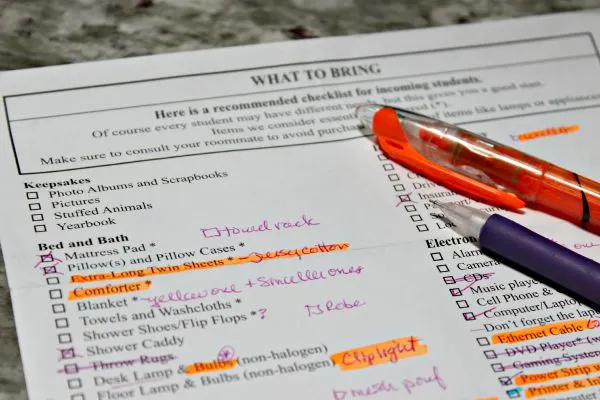 WHAT TO BRING
Here is a recommended checklist for incoming students.
Of course every student may have different but this gives you a good start.
Items we consider of items like lamps or appliances
Make sure to consult your roommate to avoid
Keepsakes
Photo Albums and Scrapbooks
Pictures
Stuffed Animals
Yearbook
Bed and Bath
towel rack
Mattress Pad *
Pillow(s) and Pillow Cases *
Extra-Long Twin Sheets * - jersey cotton
Comforter *
Blanket * - yellow one + smaller ones
Towels and Washcloths *
Robe
Shower Shoes/Flip Flops * ?
Shower Caddy
Throw Rugs
Desk Lamp & Bulbs (non-halogen)
Clip light
Floor Lamp & Bulbs (non-halogen)
mesh pouf
Electron
Alarm
Camera
CDs
Music playe
Cell Phone &
Computer/Laptop
Don't forget the
Ethernet Cable
DVD Player* (w
Gaming System
Power Strip w
Printer & Ink